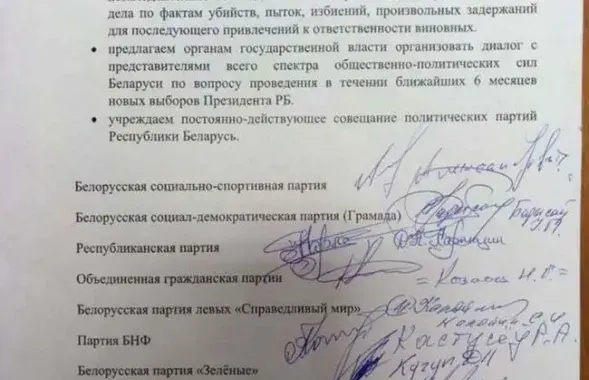 дела по фактам убийств, пыток, избиений, произвольных задержаний
для последующего привлечения к ответственности виновных.
• предлагаем органам государственной власти организовать диалог с
представителями всего спектра общественно-политических сил
Беларуси по вопросу проведения в течении ближайших 6 месяцев
новых выборов Президента РБ.
• учреждаем постоянно-действующее совещание политических партий
Республики Беларусь.
Белорусская социально-спортивная партия
Белорусская социал-демократическая партия (Грамада) Барысаў
Республиканская партия
Объединенная гражданская партия = Козлов Н.О. =
Белорусская партия левых «Справедливый мир»
Партия БНФ Кастусёў Р.А.
Белорусская партия «Зелёные» Кучук Д.И